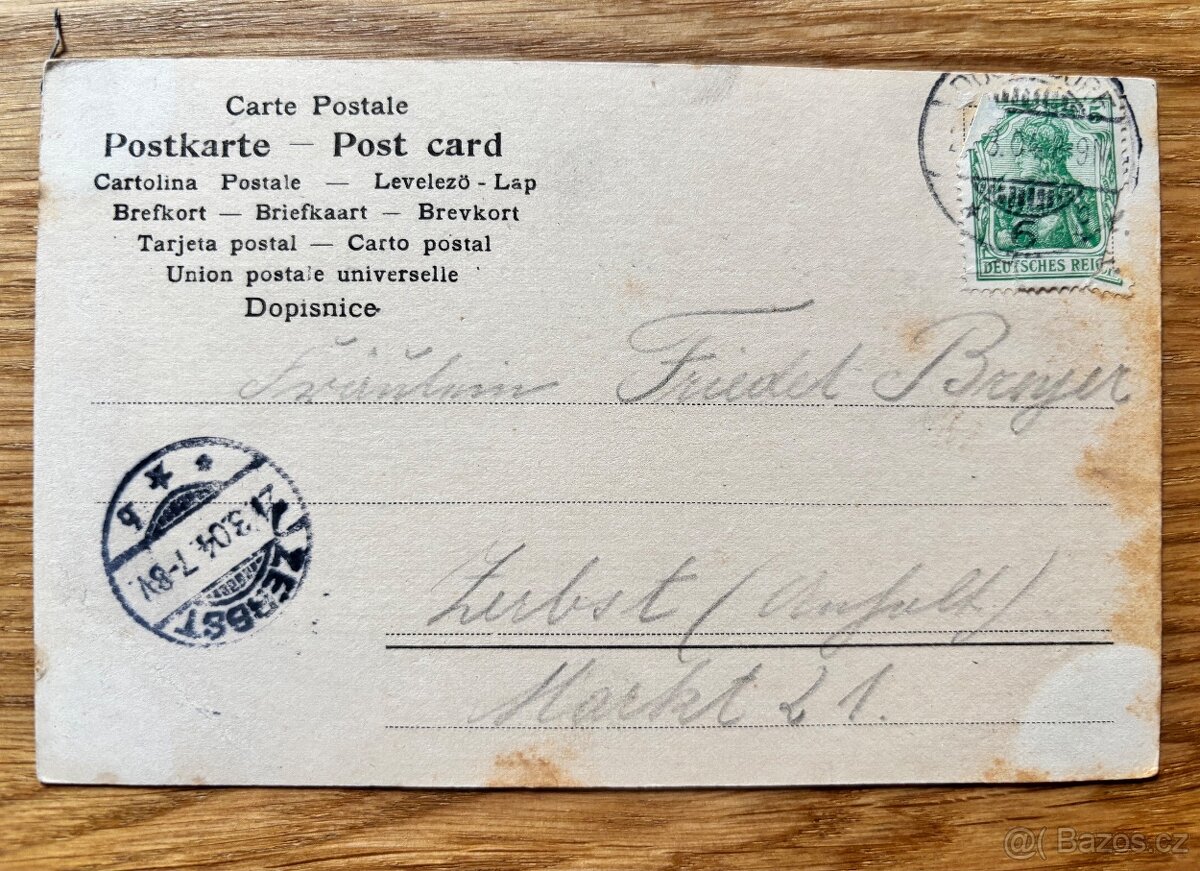 Carte Postale
Postkarte — Post card
Cartolina Postale — Levelezö - Lap
Brefkort — Briefkaart — Brevkort
Tarjeta postal — Carto postal
Union postale universelle
Dopisnice
5
DEUTSCHES REICH
Fräulein Friedel Breyer
ZERBST
21.3.04.7-8V.
Zerbst (Anhalt)
Markt 21.
@( Bazos.cz